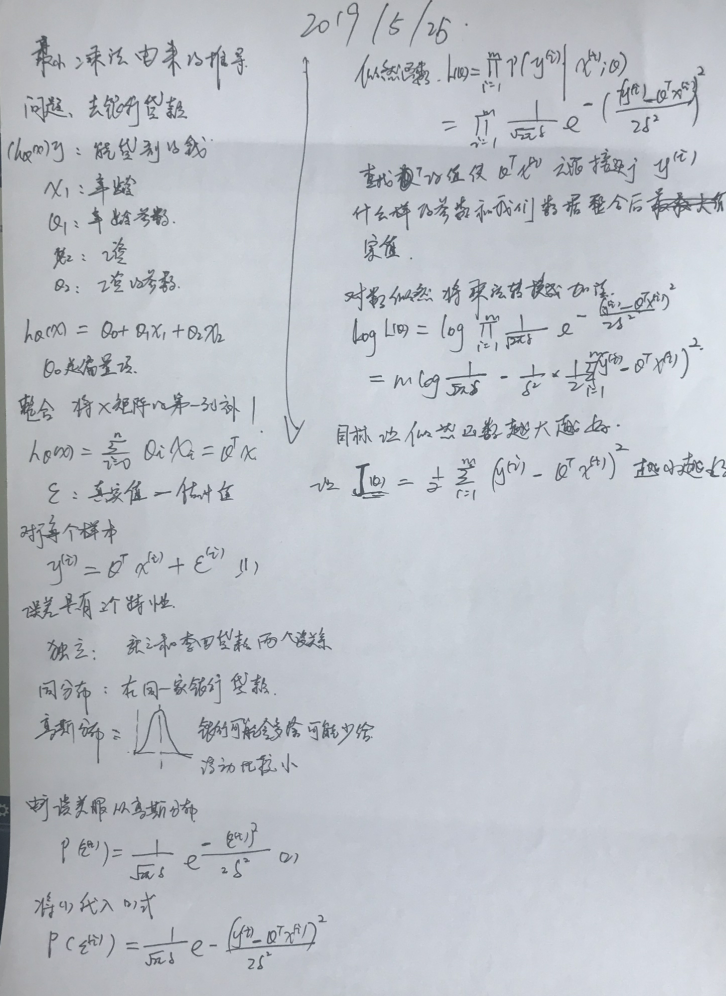 2019/5/25.
最小二乘法由来的推导
问题、去银行贷款
(hθ(x))y：能贷到的钱
x1：年龄
θ1：年龄参数.
x2：工资
θ2：工资的参数.
hθ(x) = θ0+θ1x1+θ2x2
θ0是偏置项.
整合 将x矩阵的第一列补1
hθ(x) = Σ(i=0→n) θi xi = θ^T x
ε：真实值一估计值
对于每个样本
y^(i) = θ^T x^(i) + ε^(i) (1)
误差具有2个特性.
独立： 张三和李四贷款两个没关系
同分布：在同一家银行贷款.
高斯分布： 银行可能会多给可能少给
浮动比较小
由于误差服从高斯分布
P(ε^(i)) = 1/(√2π δ) e^-((ε^(i))^2/2δ^2) (2)
将(1)代入(2)式
P(ε^(i)) = 1/(√2π δ) e-((y^(i)-θ^T x^(i))^2/2δ^2)
似然函数. L(θ) = Π(i=1→m) P(y^(i)|x^(i);θ)
= Π(i=1→m) 1/(√2π δ) e^-((y^(i)-θ^T x^(i))^2/2δ^2)
θ^T的值使θ^T x^(i) 接近于 y^(i)
什么样的参数和我们数据整合后
实值.
对数似然 将乘法转换成加法.
log L(θ) = log Π(i=1→m) 1/(√2π δ) e^-((y^(i)-θ^T x^(i))^2/2δ^2)
= m log 1/(√2π δ) - 1/δ^2 × 1/2 Σ(i=1→m) (y^(i) - θ^T x^(i))^2
目标 让似然函数越大越好.
让 J(θ) = 1/2 Σ(i=1→m) (y^(i) - θ^T x^(i))^2 越小越好